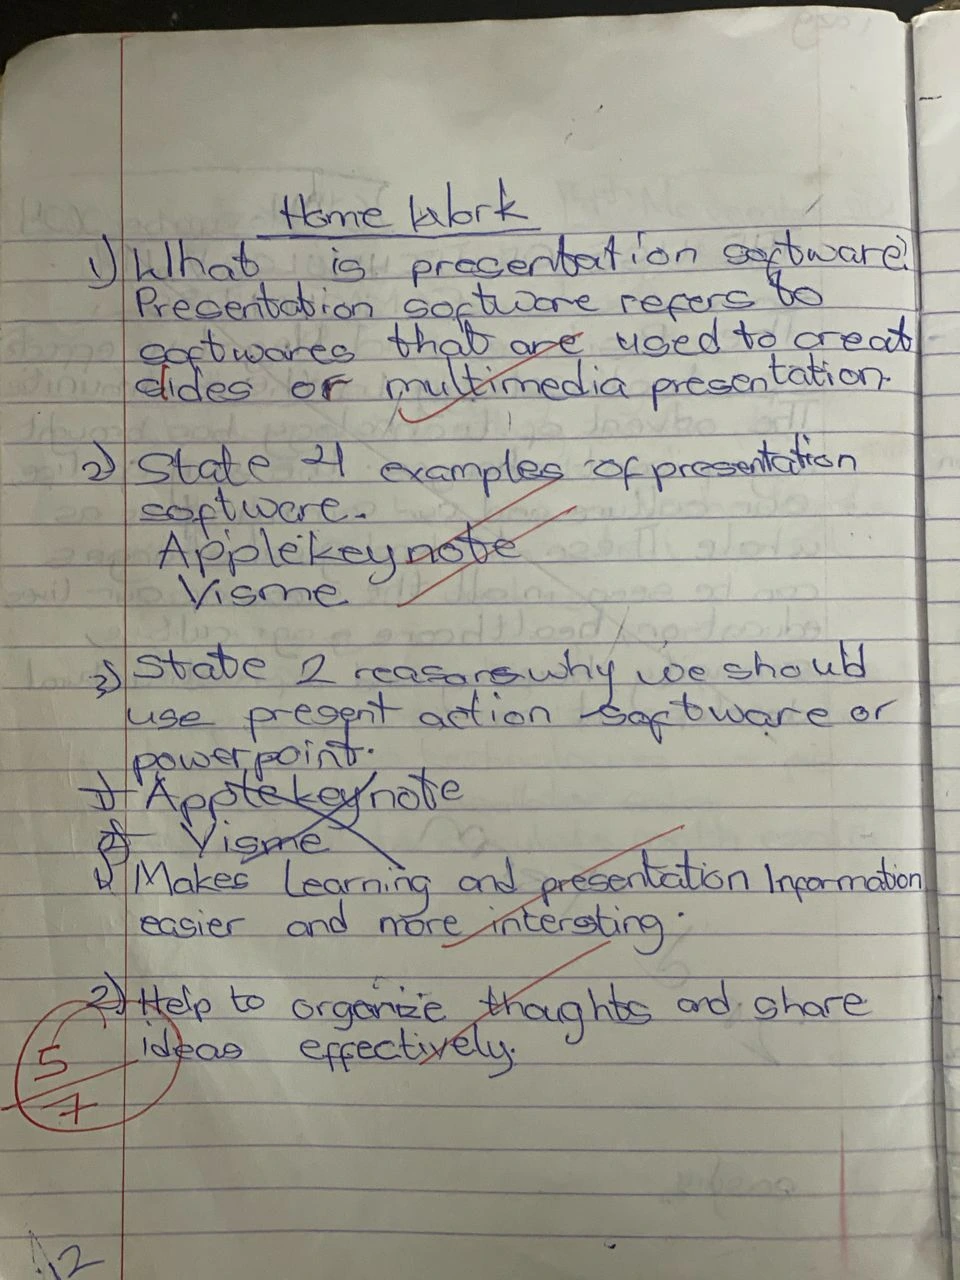 Home Work
1) What is presentation software?
Presentation software refers to
softwares that are used to creat
slides or multimedia presentation.
2) State 4 examples of presentation
software.
Applekeynote
Visme
3) State 2 reasons why we should
use present action software or
powerpoint.
1) Applekeynote
2) Visme
1) Makes Learning and presentation Information
easier and more intersting.
2) Help to organize thoughts and share
ideas effectively.
5/7
12